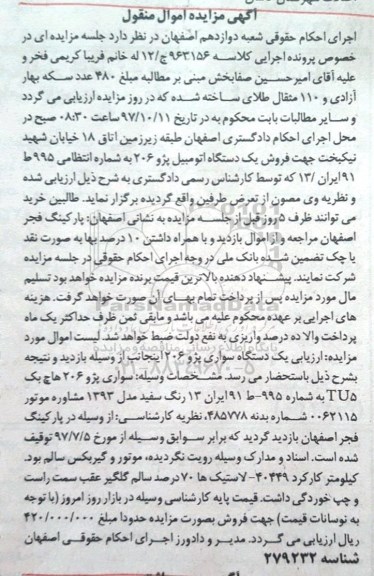 آگهی مزایده اموال منقول
اجرای احکام حقوقی شعبه دوازدهم اصفهان در نظر دارد جلسه مزایده ای در
خصوص پرونده اجرایی کلاسه ۹۶۳۱۵۶ ج/۱۲ له خانم فریبا کریمی فخر و
علیه آقای امیرحسین صفابخش مبنی بر مطالبه مبلغ ۴۸۰ عدد سکه بهار
آزادی و ۱۱۰ مثقال طلای ساخته شده که در روز مزایده ارزیابی می گردد
و سایر مطالبات بابت محکوم به در تاریخ ۹۷/۱۰/۱۱ ساعت ۰۸:۳۰ صبح در
محل اجرای احکام دادگستری اصفهان طبقه زیرزمین اتاق ۱۸ خیابان شهید
نیکبخت جهت فروش یک دستگاه اتومبیل پژو ۲۰۶ به شماره انتظامی ۹۹۵ ط
۹۱ ایران /۱۳ که توسط کارشناس رسمی دادگستری به شرح ذیل ارزیابی شده
و نظریه وی مصون از تعرض طرفین واقع گردیده برگزار نماید. طالبین خرید
می توانند ظرف ۵ روز قبل از جلسه مزایده به نشانی اصفهان: پارکینگ فجر
اصفهان مراجعه و از اموال بازدید و با همراه داشتن ۱۰ درصد بها به صورت نقد
یا چک تضمین شده بانک ملی در وجه اجرای احکام حقوقی در جلسه مزایده
شرکت نمایند. پیشنهاد دهنده بالاترین قیمت برنده مزایده خواهد بود تسلیم
مال مورد مزایده پس از پرداخت تمام بهای آن صورت خواهد گرفت. هزینه
های اجرایی بر عهده محکوم علیه می باشد و مابقی ثمن ظرف حداکثر یک ماه
پرداخت والا ده درصد واریزی به نفع دولت ضبط خواهد شد. لیست اموال مورد
مزایده: ارزیابی یک دستگاه سواری پژو ۲۰۶ اینجانب از وسیله بازدید و نتیجه
بشرح ذیل باستحضار می رسد. مشخصات وسیله: سواری پژو ۲۰۶ هاچ بک
TU۵ به شماره ۹۹۵-ط ۹۱ ایران ۱۳ رنگ سفید مدل ۱۳۹۳ مشاوره موتور
۰۰۶۲۱۱۵ شماره بدنه ۴۸۵۷۷۸، نظریه کارشناسی: از وسیله در پارکینگ
فجر اصفهان بازدید گردید که برابر سوابق وسیله از مورخ ۹۷/۷/۵ توقیف
شده است. اسناد و مدارک وسیله رویت نگردیده، موتور و گیربکس سالم بود.
کیلومتر کارکرد ۴۰۴۴۹-لاستیک ها ۷۰ درصد سالم گلگیر عقب سمت راست
و چپ خوردگی داشت. قیمت پایه کارشناسی وسیله در بازار روز امروز (با توجه
به نوسانات قیمت) جهت فروش بصورت مزایده حدودا مبلغ ۴۲۰/۰۰۰/۰۰۰
ریال ارزیابی می گردد. مدیر و دادورز اجرای احکام حقوقی اصفهان
شناسه ۲۷۹۲۳۲